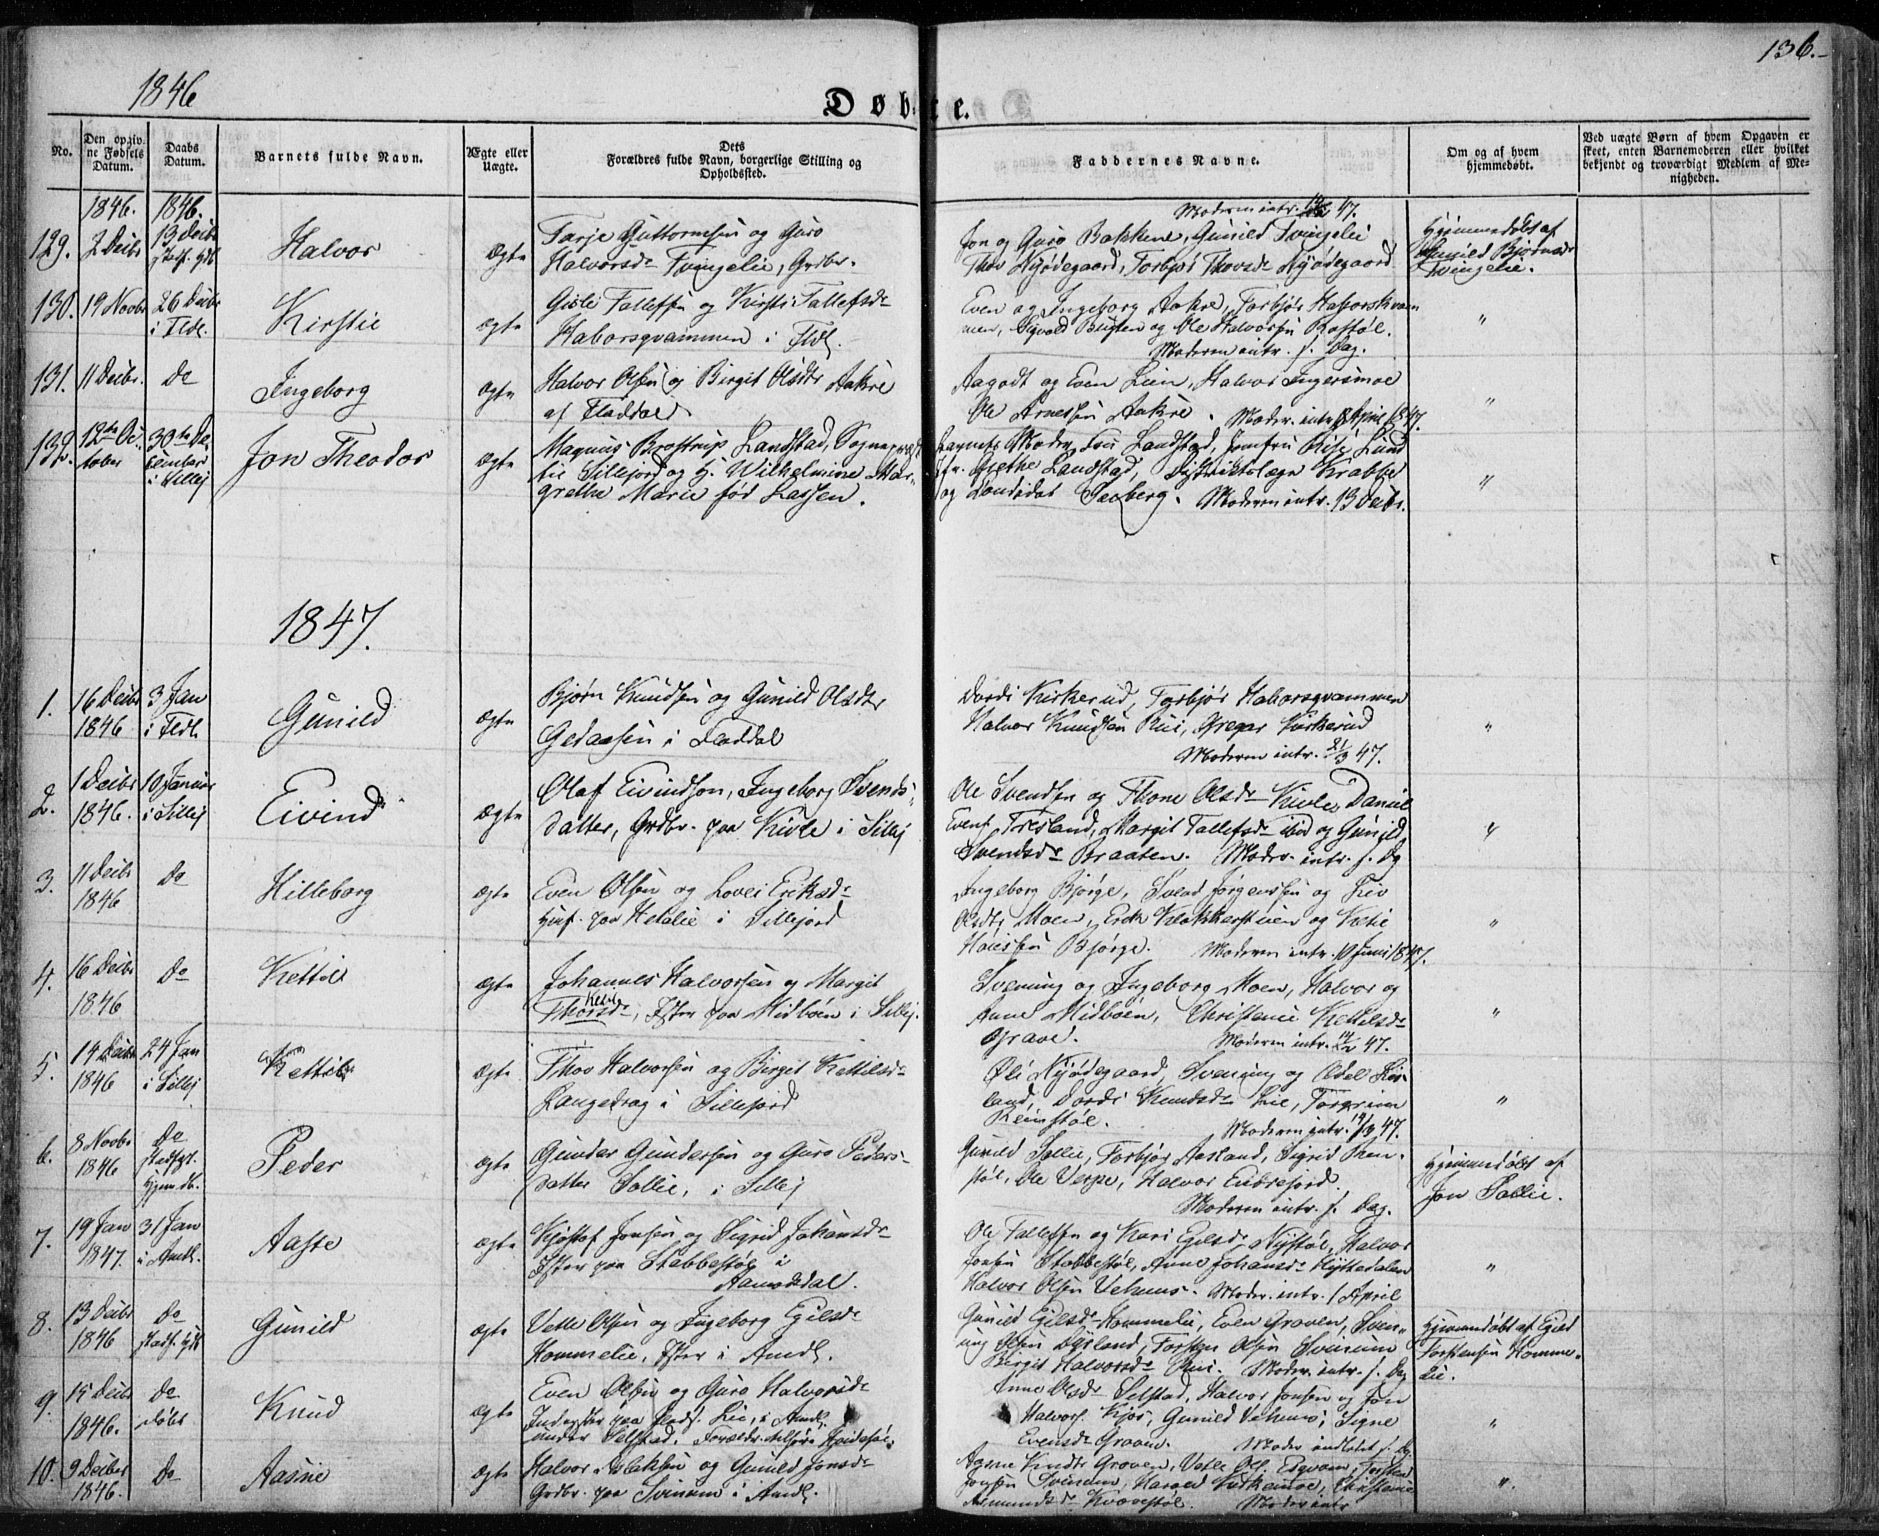 1846
Døbte.
136.
No.
Den opgivne Fødsels Datum.
Daabs Datum.
Barnets fulde Navn.
Ægte eller Uægte.
Dets Forældres fulde Navn, borgerlige Stilling og Opholdssted.
Faddernes Navne.
Om og af hvem hjemmedøbt.
Ved uægte Børn af hvem Opgaven er skeet, enten Barnemoderen eller hvilket bekjendt og troværdigt Medlem af Menigheden.
1846. 1846.
129. 2 Decbr 13 Decbr
Halvor
ægte
Tarje Guttormsen og Guro
Halvorsdr Tvingelie, Grdbr.
Moderen intr. 47.
Jon og Guro Bakkene, Gunild Tvingelie
Thov Nyødegaard, Torbjør Thovsdr Nyødegaard
Hjemmedøbt af
Gunild Bjørnsdr
Tvingelie.
130. 19 Novbr 26 Decbr
i Fldl.
Kirstie
ægte
Gisle Tallefsen og Kirsti Tallefsdr
Haborsqvammen i Fldl.
Even og Ingeborg Aakre, Torbjør Haborskvam
men, og Ole Halvorsen
Moderen intr. s. Dag.
"
131. 11 Decbr. Do
Ingeborg
ægte
Halvor Olsen og Birgit Olsdtr Aakre
af Fladdal
Aagodt og Even Lien, Halvor Ingersmoe
Ole Arnessen Aakre. Moder. intr. April 1847.
"
132. 12te Oc
tober 30te De
cember
i Sillej
Jon Theodor
ægte
Magnus Brostrup Landstad, Sognepræst
til Sillejord og H. Wilhelmine Mar-
grethe Marie fød Lassen.
Barnets Moder, Fru Landstad, Jomfru Lund
fr. Grethe Landstad, Districtslæge Krabbe
og Seeberg. Moderen intr. 13 Decbr.
"
1847.
1. 16 Decbr
1846 3 Jan
i Fldl.
Gunild
ægte
Bjørn Knudsen og Gunild Olsdtr
i Fladdal
Dordi Kirkerud, Torbjør Haborsqvammen
Halvor Knudsen Rui, Gregar Kirkerud
Moderen intr. 21/3 47.
"
2. 1 Decbr
1846. 10 Januar
i Sillej
Eivind
ægte
Olaf Eivindson, Ingeborg Svends-
datter, Grdbr. paa Kivle i Sillej
Ole Svendsen og Thone Olsdr Kivle, Daniel
Event. Tresland, Margit Tallefsdr ibid og Gunild
Svendsdr Braaten. Moder. intr. s. Dg
"
3. 11 Decbr
1846 Do
Hilleborg
ægte
Even Olsen og Lovei Eriksdr
Huusf. paa Hetalie i Sillejord
Ingeborg Bjørge, Svend Jørgenssen og Liv
Olsdtr Moen, Erik Klokkerstuen og
Bjørge. Moderen intr. Juni 1847.
"
4. 16 Decbr
1846 Do
Kettil
ægte
Johannes Halvorsen og Margit
Ketils
Thorsdr, Ister paa Midbøen i Sillej.
Svening og Ingeborg Moen, Halvor og
Anne Midbøen, Christence Kettilsdr
Grave. Moderen intr. 47.
"
5. 14 Decbr
1846 24 Jan
i Sillej
Kettil
ægte
Thov Halvorsen og Birgit Kettilsdr
Langedrag i Sillejord
Øli Nyødegaard, Svening og Aadel
land, Dordi Knudsdr Lie, Torgrim
Reinstøl. Moderen intr. 14/3 47.
"
6. 8 Novbr
1846 Do
Peder
ægte
Gunder Gundersen og Guro Peders-
datter Sollie, i Sillej
Gunild Sollie, Torbjør Aasland, Sigrid Rein-
støl, Ole Verpe, Halvor Eidrefjord.
Moderen intr. s. Dag.
Hjemmedøbt af
Jon Sollie.
7. 19 Jan
1847. 31 Jan
i Amdl.
Aasse
ægte
Kjøstof Jonsen og Sigrid Johansdr
Ister paa Stabbestøl i
Aamodsdal.
Ole Tallefsen og Kari Egilsdr Nystøl, Halvor
Jonsen Stabbestøl, Anne Johansdr Hyttedalen
Halvor Olsen Vehuus. Moder. intr. April
"
8. 13 Decbr
1846 Do
Gunild
ægte
Vetle Olsen og Ingeborg Egilsdr
Hommelie, Ister i Amdl.
Gunild Egilsdr Hommelie, Even Groven, Sven-
ung Olsen Dysland, Torsten Olsen Svinum
Birgit Halvorsdr Rui. Moder. intr. s. Dg
Hjemmedøbt af Egild
Torstensen Homme-
lie.
9. 15 Decbr
1846. Do
døbt
Knud
ægte
Even Olsen og Guro Halvorsdr
Lie, i Amdl.
under Selstad.
Anne Olsdr Selstad, Halvor Jonsen og Jon
Halvors. Kjos, Gunild Vehuus, Signe
Evensdr Groven. Moder indledet s. Dg.
"
10. 9 Decbr
1846. Do
Aasne
ægte
Halvor Aslaksen og Gunild Jonsdr
Grdbr. paa Svinum i Amdl.
Aasne Knudsdtr Groven, Vetle Ols. Edqvam, Torsten
Jonsen Svinum, Harald Kirkemoe, Christence
Aasmundsdr Moder intr
"